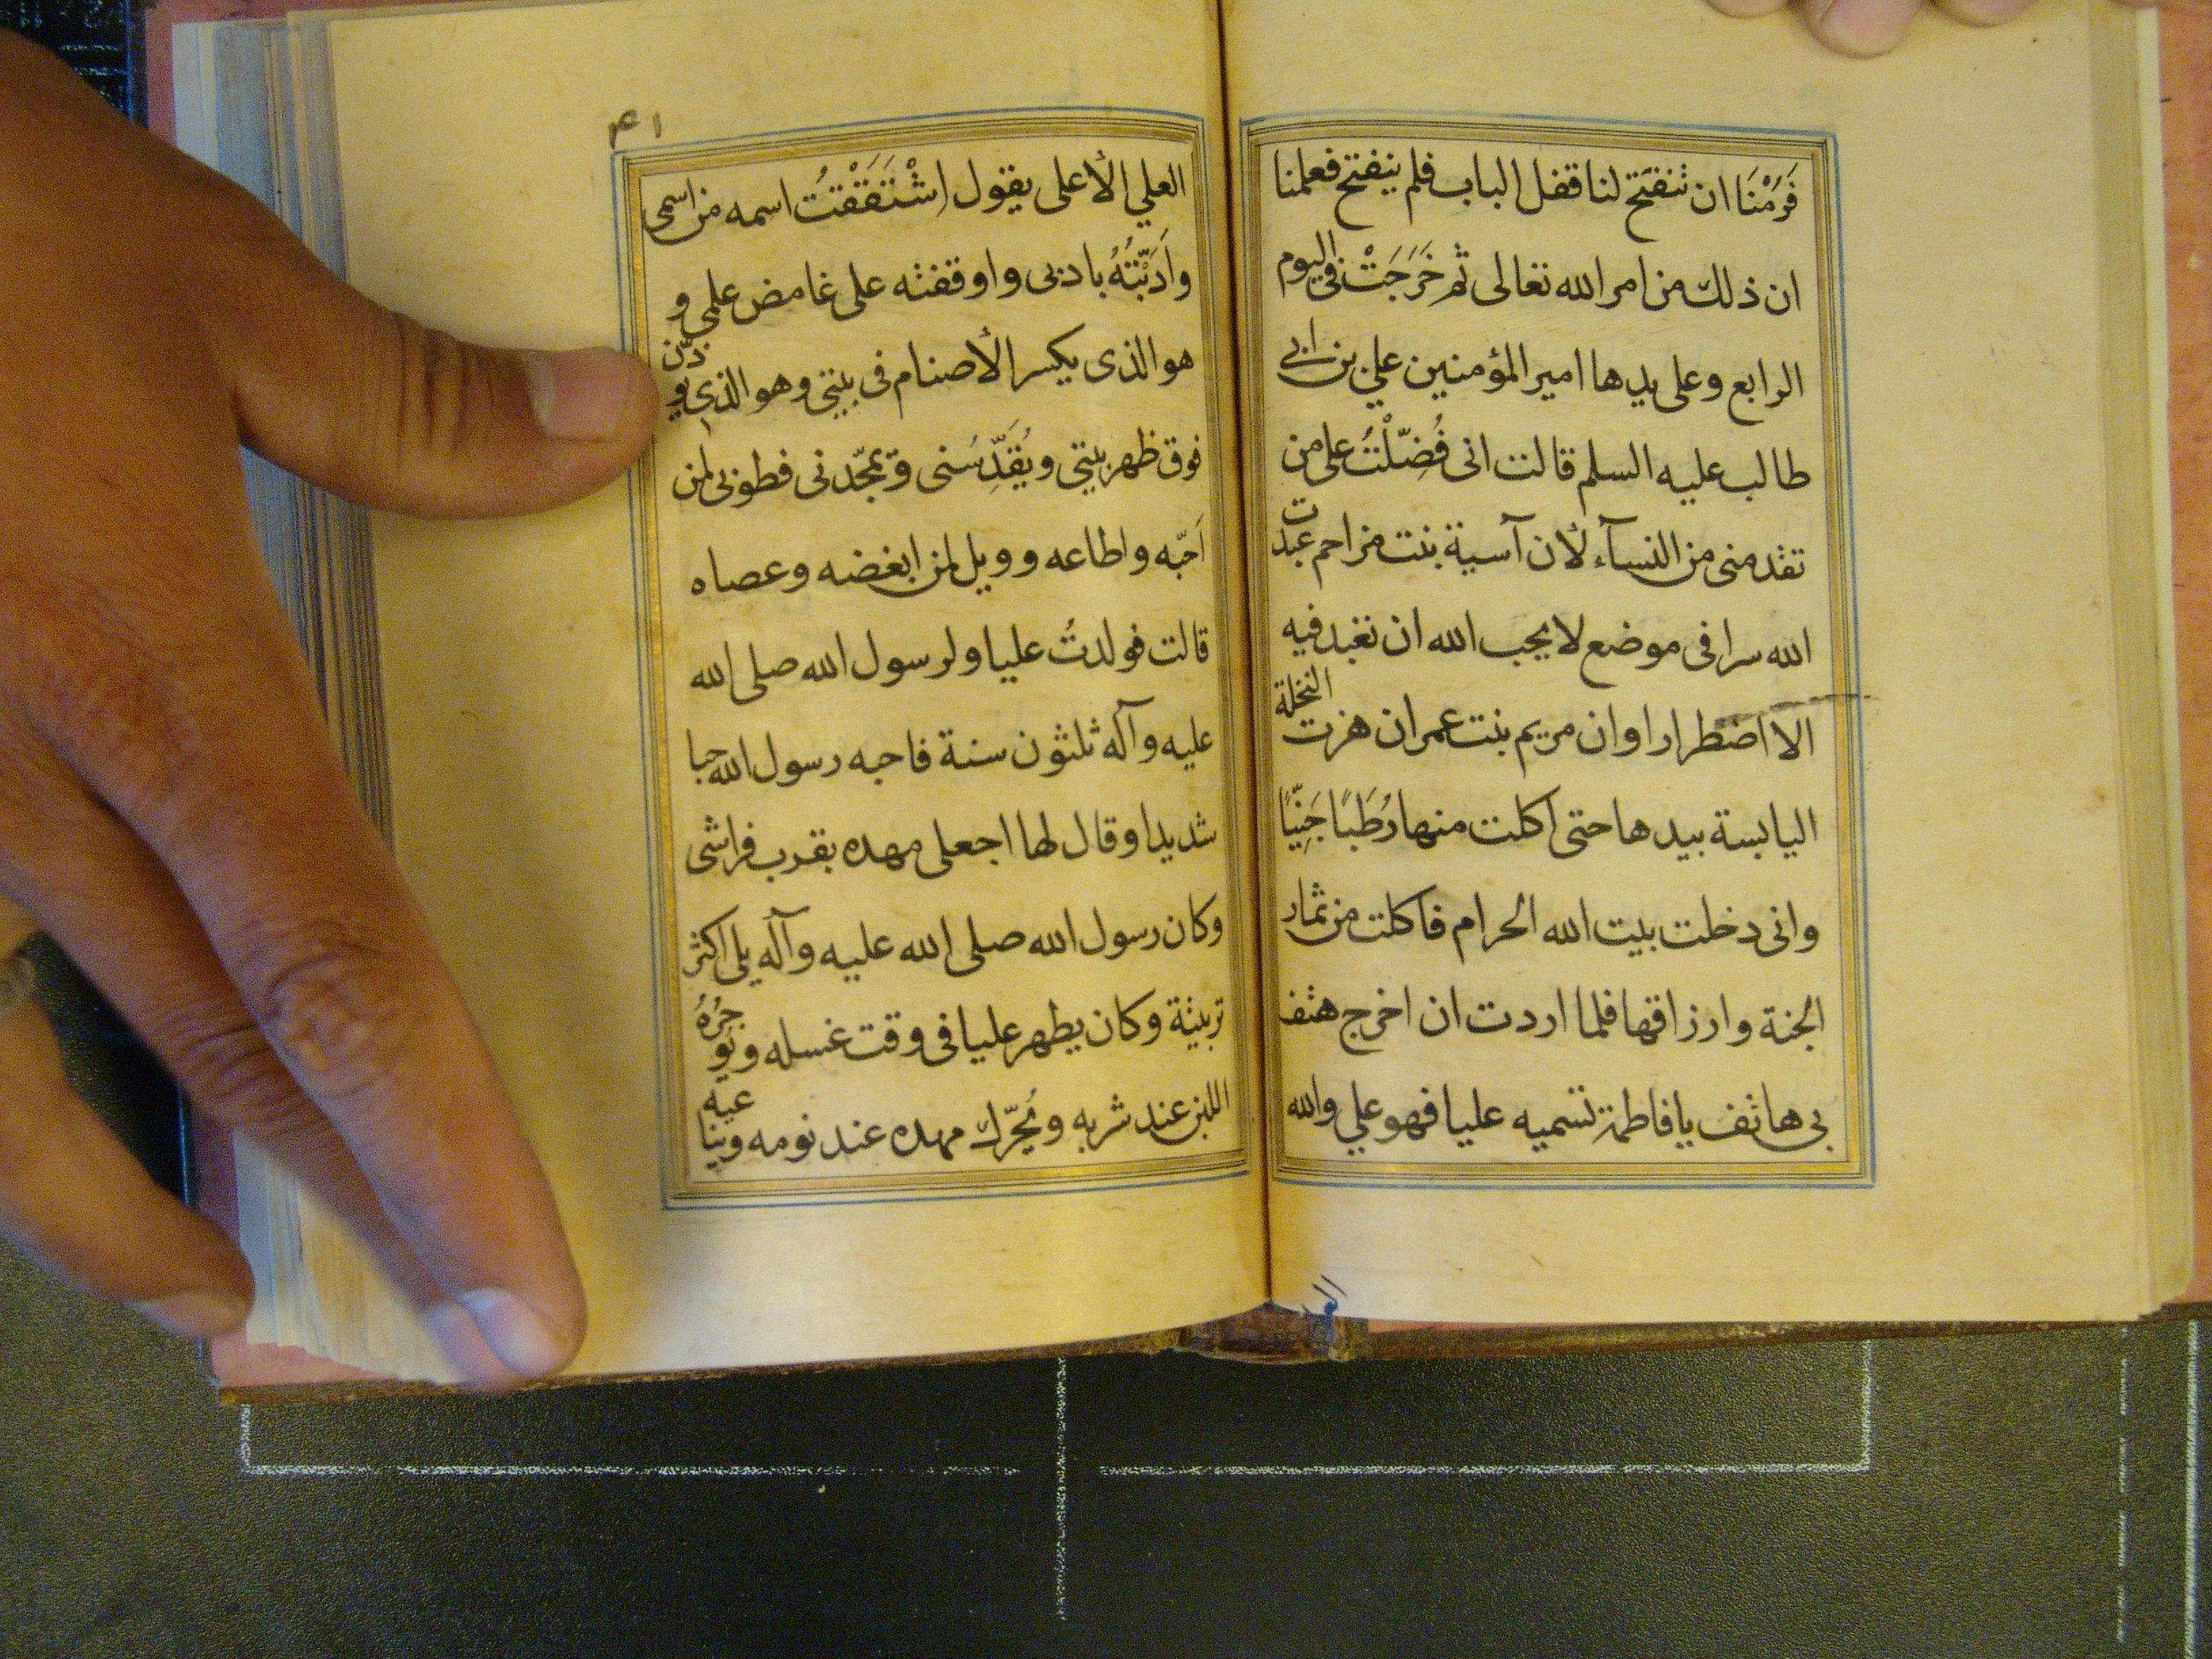 فَرَمْنَا ان تنفتح لنا قفل الباب فلم ينفتح فعلمنا
ان ذلك من امر الله تعالى ثم خَرَجَتْ في اليوم
الرابع وعلى يدها امير المؤمنين علي بن ابي
طالب عليه السلم قالت انى فُضِّلْتُ على من
تقدمنى من النسآء لأن آسية بنت مزاحم عبدت
الله سرا فى موضع لا يحب الله ان نعبد فيه
الا اضطرارا وان مريم بنت عمران هزت النخلة
اليابسة بيدها حتى اكلت منها رُطَبًا جَنِيًّا
وانى دخلت بيت الله الحرام فاكلت من ثمار
الجنة وارزاقها فلما اردت ان اخرج هتف
بى هاتف يا فاطمة تسميه عليا فهو علي والله
العلي
۴۱
العلي الأعلى يقول اِشْتَقَقْتُ اسمه من اسمى
وَاَدَّبْتُهُ بادبى واوقفته على غامض علمي و
هو الذى يكسر الأصنام فى بيتي وهو الذي يوذن
فوق ظهر بيتي ويُقَدِّسُنى ويمجّدنى فطوبى لمن
اَحبّه واطاعه وويل لمن ابغضه وعصاه
قالت فولدتُ عليا ولرسول الله صلى الله
عليه وآله ثلثون سنة فاحبه رسول الله حبا
شديدا وقال لها اجعلى مهده بقرب فراشى
وكان رسول الله صلى الله عليه وآله يلى اكثر
تربيته وكان يطهر عليا فى وقت غسله ويوجُرُهُ
اللبن عند شربه ويُحرّك مهده عند نومه ويناغيه